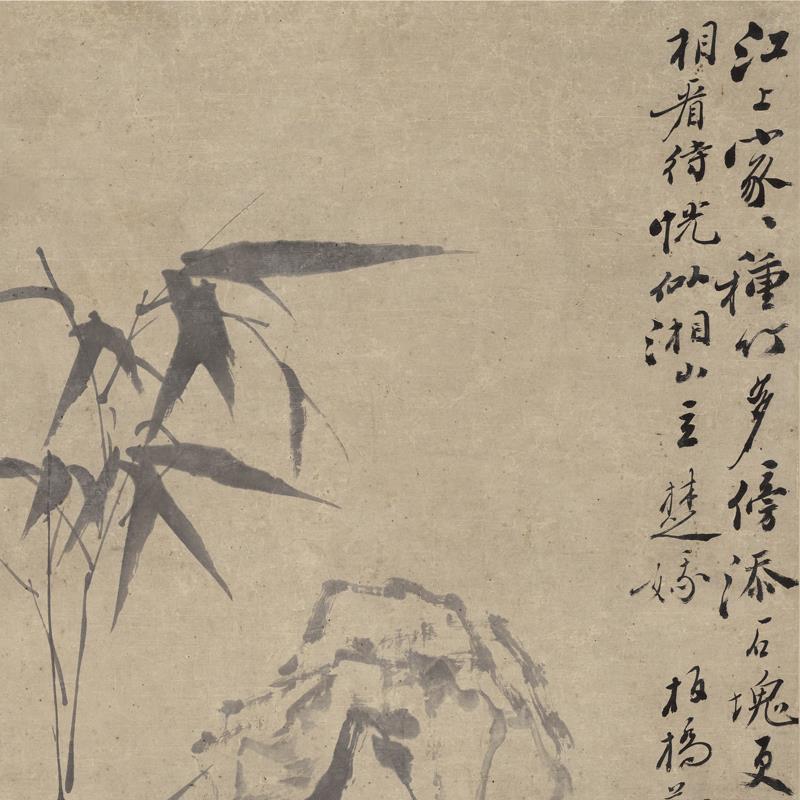 江上家、種竹多傍添石塊更
相看待恍似湘山立楚娥 板橋